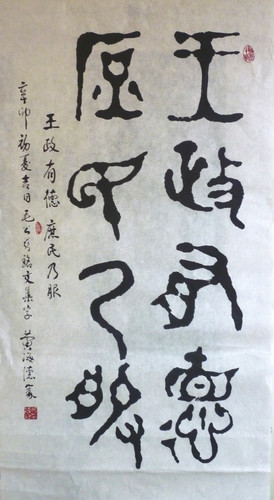 王政有德
庶民乃服
王政有德 庶民乃服
辛卯初夏吉日毛公鼎銘文集字 黄海篆